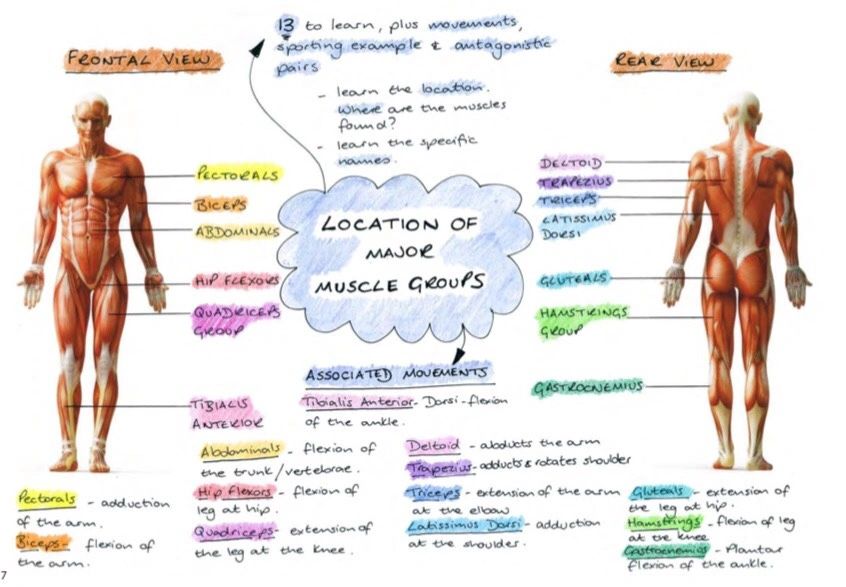 13 to learn, plus movements,
sporting example & antagonistic
pairs
- learn the location.
Where are the muscles
found?
- learn the specific
names.
FRONTAL VIEW
REAR VIEW
PECTORALS
BICEPS
ABDOMINALS
HIP FLEXORS
QUADRICEPS
GROUP
TIBIALIS
ANTERIOR
LOCATION OF
MAJOR
MUSCLE GROUPS
DELTOID
TRAPEZIUS
TRICEPS
LATISSIMUS
DORSI
GLUTEALS
HAMSTRINGS
GROUP
GASTROCNEMIUS
ASSOCIATED MOVEMENTS
Tibialis Anterior - Dorsi-flexion
of the ankle.
Abdominals - flexion of
the trunk/vertebrae.
Hip Flexors - flexion of
leg at hip.
Quadriceps - extension of
the leg at the knee.
Pectorals - adduction
of the arm.
Biceps - flexion of
the arm.
Deltoid - abducts the arm
Trapezius - adducts & rotates shoulder
Triceps - extension of the arm
at the elbow
Latissimus Dorsi - adduction
at the shoulder.
Gluteals - extension of
the leg at hip.
Hamstrings - flexion of leg
at the knee
Gastrocnemios - Plantar
flexion of the ankle.
7